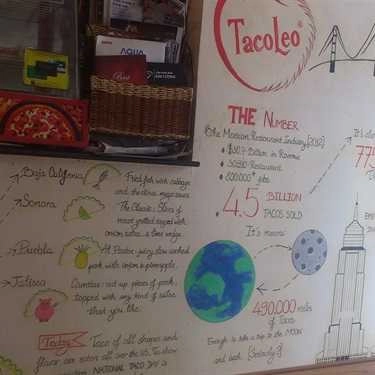 AQUA
Best
TacoLeo ®
THE NUMBER
The Mexican Restaurant Industry [2012]
Billion in Revenue
Restaurant
jobs
4.5 BILLION
TACOS SOLD
It's means
490.000 miles
of Taco
Enough to take a trip to the MOON
and back
Baja California
Fried fish with cabbage
and the citrus mayo sauce
Sonora
The Classic: Slices of
meat grilled topped with
onion, salsa, a lime wedge
Puebla
Al Pastor: juicy slow cooked
pork with onion & pineapple.
Jalisco
Carnitas: cut up pieces of pork,
topped with any kind of salsa
that you like.
Today
Taco of all shapes and
flavor are eaten all over the US. The show
NATIONAL TACO DAY is
It's
775